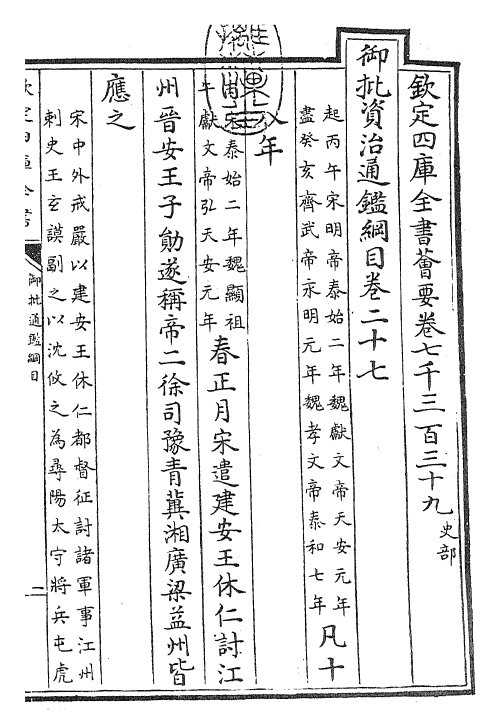 欽定四庫全書薈要卷七千三百三十九史部
御批資治通鑑綱目卷二十七
起丙午宋明帝泰始二年魏獻文帝天安元年
盡癸亥齊武帝永明元年魏孝文帝泰和七年凡十
八年
午宋泰始二年魏顯祖
獻文帝弘天安元年春正月宋遣建安王休仁討江
州晉安王子勛遂稱帝二徐司豫青冀湘廣梁益州皆
應之
宋中外戒嚴以建安王休仁都督征討諸軍事江州
刺史王玄謨副之以沈攸之為尋陽太守將兵屯虎
欽定四庫全書
御批通鑑綱目
二